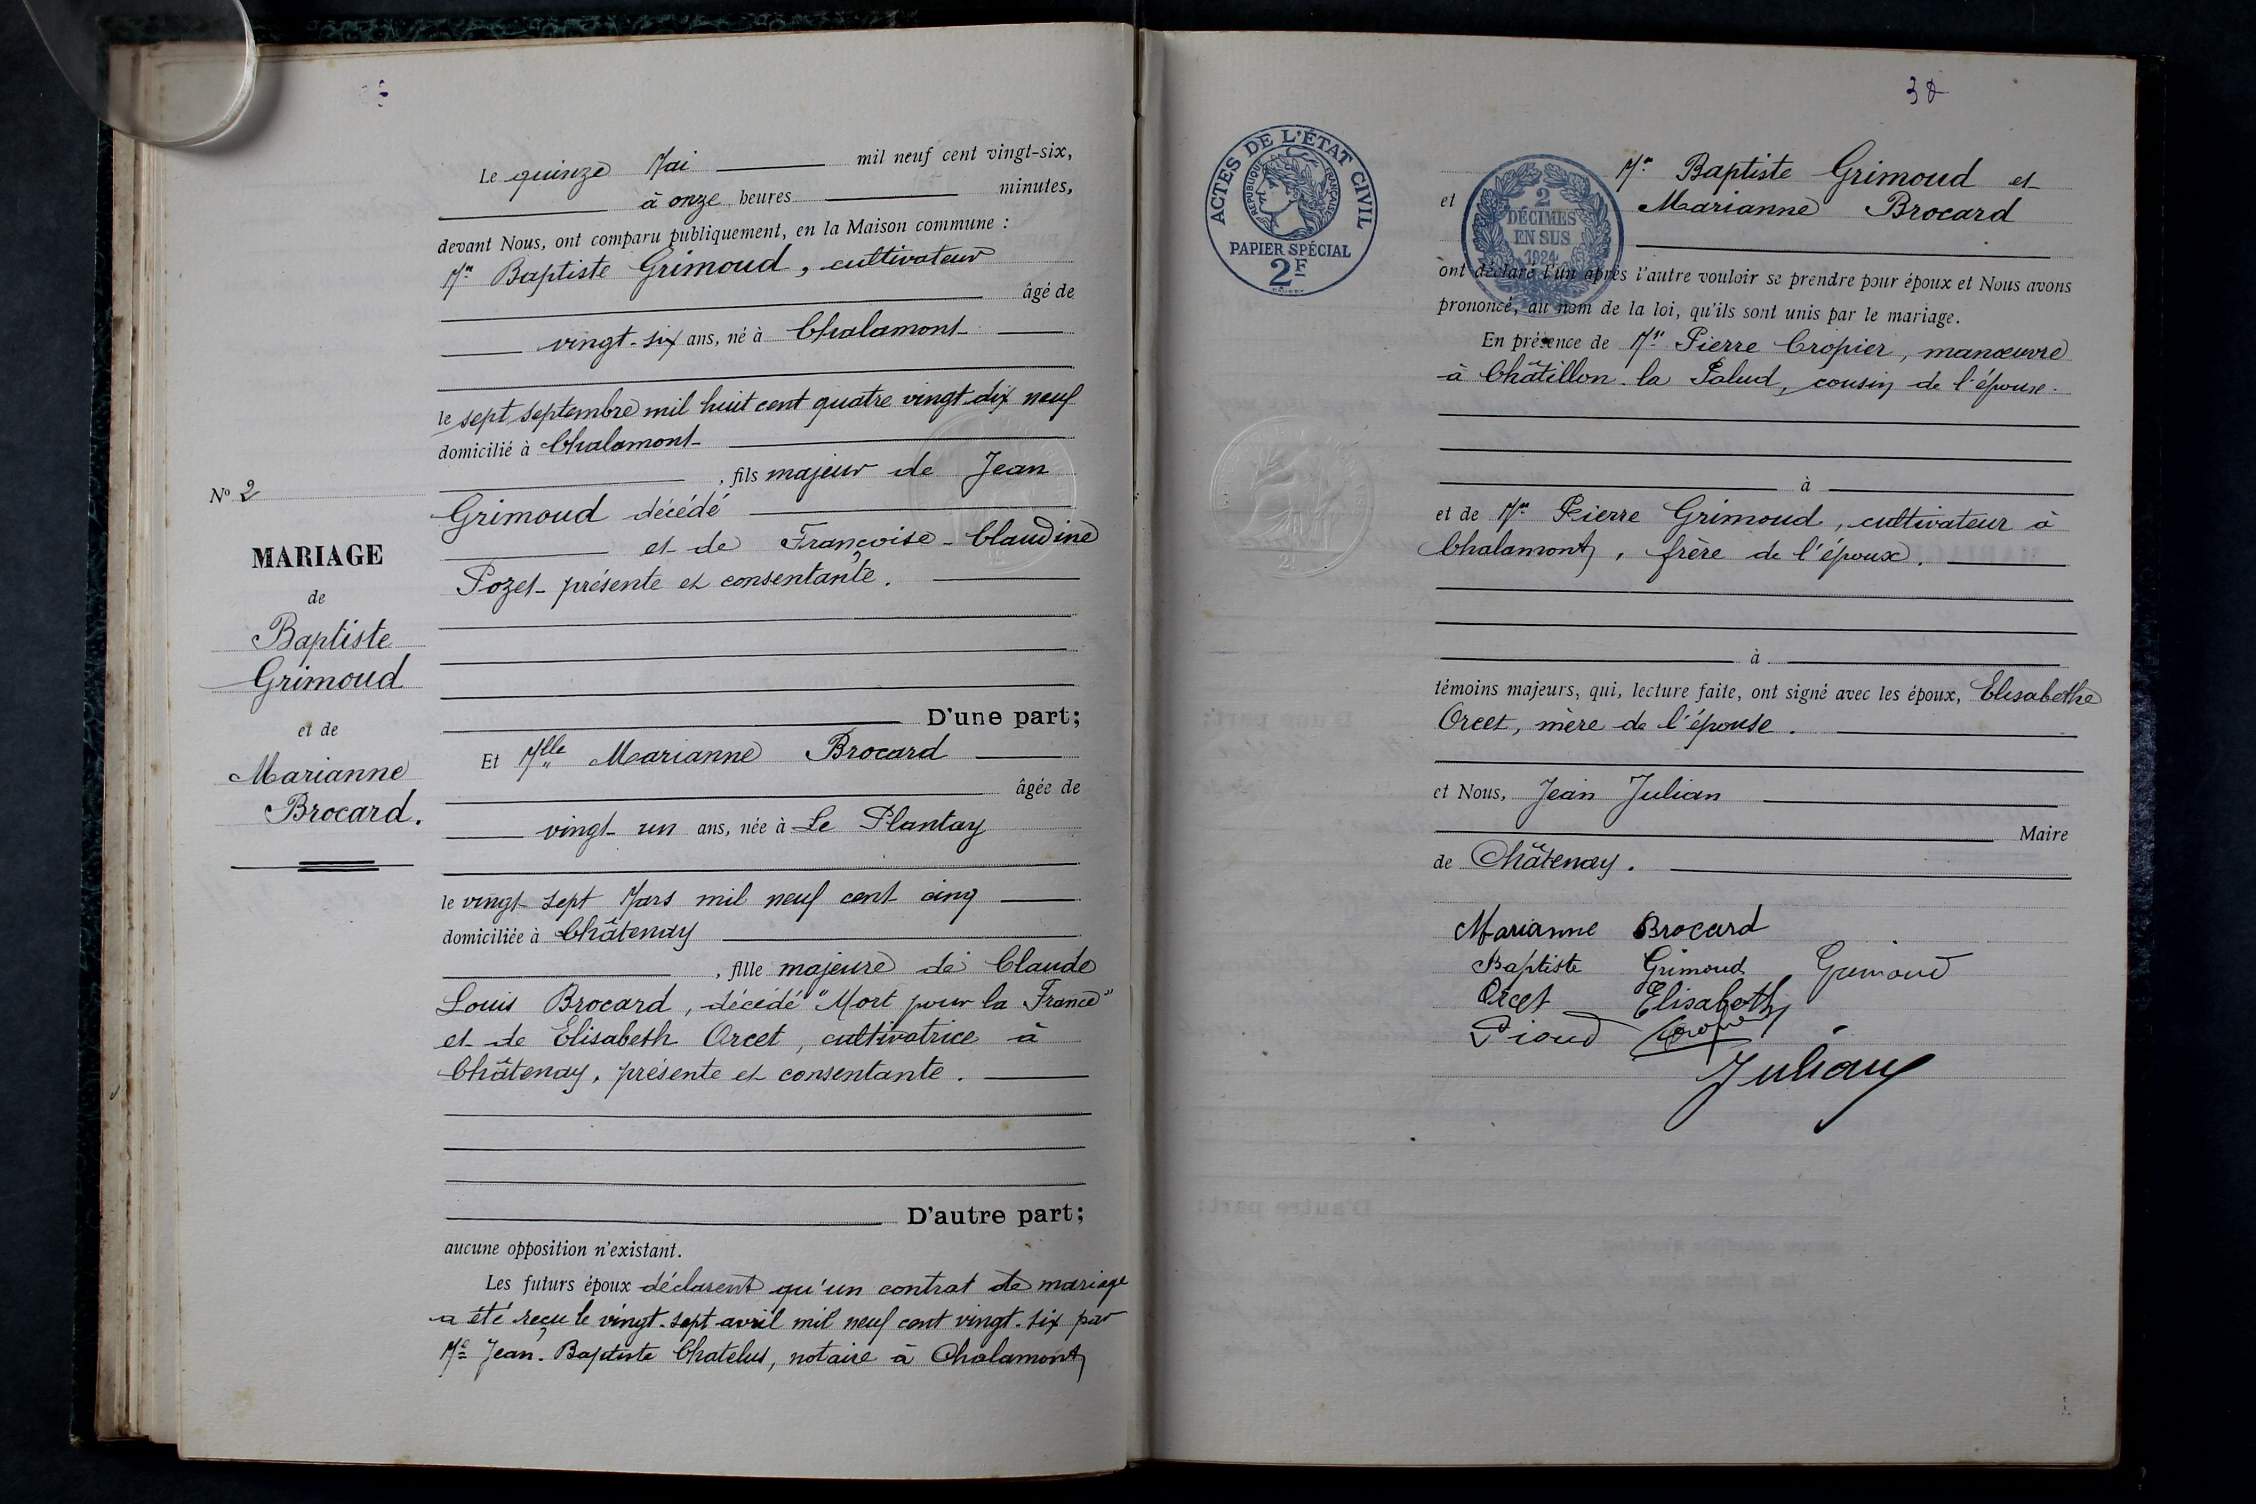 Le quinze Mai mil neuf cent vingt-six,
à onze heures minutes,
devant Nous, ont comparu publiquement, en la Maison commune :
Mr Baptiste Grimoud, cultivateur
âgé de
vingt-six ans, né à Chalamont
le sept septembre mil huit cent quatre vingt-dix neuf
domicilié à Chalamont
, fils majeur de Jean
Grimoud décédé
et de Françoise-Claudine
Pozet présente et consentante.
D'une part;
Et Mlle Marianne Brocard
âgée de
vingt-un ans, née à Le Plantay
le vingt-sept Mars mil neuf cent cinq
domiciliée à Châtenay
, fille majeure de Claude
Louis Brocard, décédé "Mort pour la France"
et de Elisabeth Orcet, cultivatrice à
Châtenay, présente et consentante.
D'autre part;
aucune opposition n'existant.
Les futurs époux déclarent qu'un contrat de mariage
a été reçu le vingt-sept avril mil neuf cent vingt-six par
Me Jean-Baptiste Chatelus, notaire à Chalamont
No 2
MARIAGE
de
Baptiste
Grimoud
et de
Marianne
Brocard.
38
ACTES DE L'ÉTAT CIVIL
RÉPUBLIQUE FRANÇAISE
PAPIER SPÉCIAL
2F
2
DÉCIMES
EN SUS
1924
Mr Baptiste Grimoud et
et Marianne Brocard
ont déclaré l'un après l'autre vouloir se prendre pour époux et Nous avons
prononcé, au nom de la loi, qu'ils sont unis par le mariage.
En présence de Mr Pierre Cropier, manœuvre
à Châtillon-la Palud, cousin de l'épouse.
à
et de Mr Pierre Grimoud, cultivateur à
Chalamont, frère de l'époux.
à
témoins majeurs, qui, lecture faite, ont signé avec les époux, Elisabethe
Orcet, mère de l'épouse.
et Nous, Jean Julian
Maire
de Châtenay.
Marianne Brocard
Baptiste Grimoud Grimoud
Orcet Elisabeth
Julian